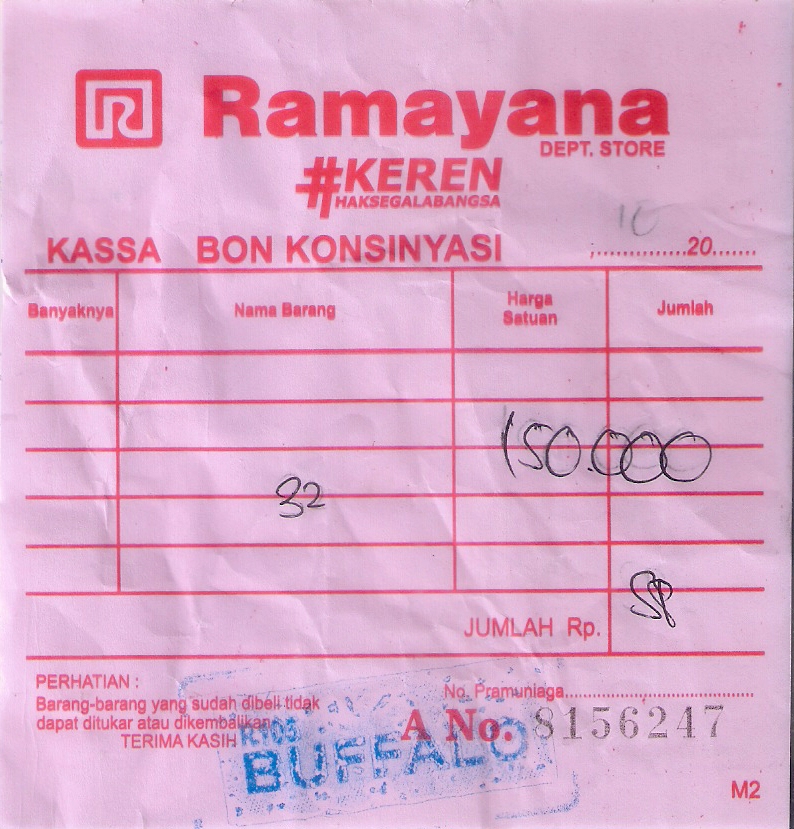 Ramayana
DEPT. STORE
#KEREN
HAKSEGALABANGSA
KASSA BON KONSINYASI ,..............20.......
Banyaknya Nama Barang Harga Satuan Jumlah
150.000
32
JUMLAH Rp.
PERHATIAN :
Barang-barang yang sudah dibeli tidak
dapat ditukar atau dikembalikan
TERIMA KASIH
No. Pramuniaga
A No. 8156247
R105
BUFFALO
M2